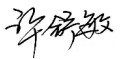 许舒敏